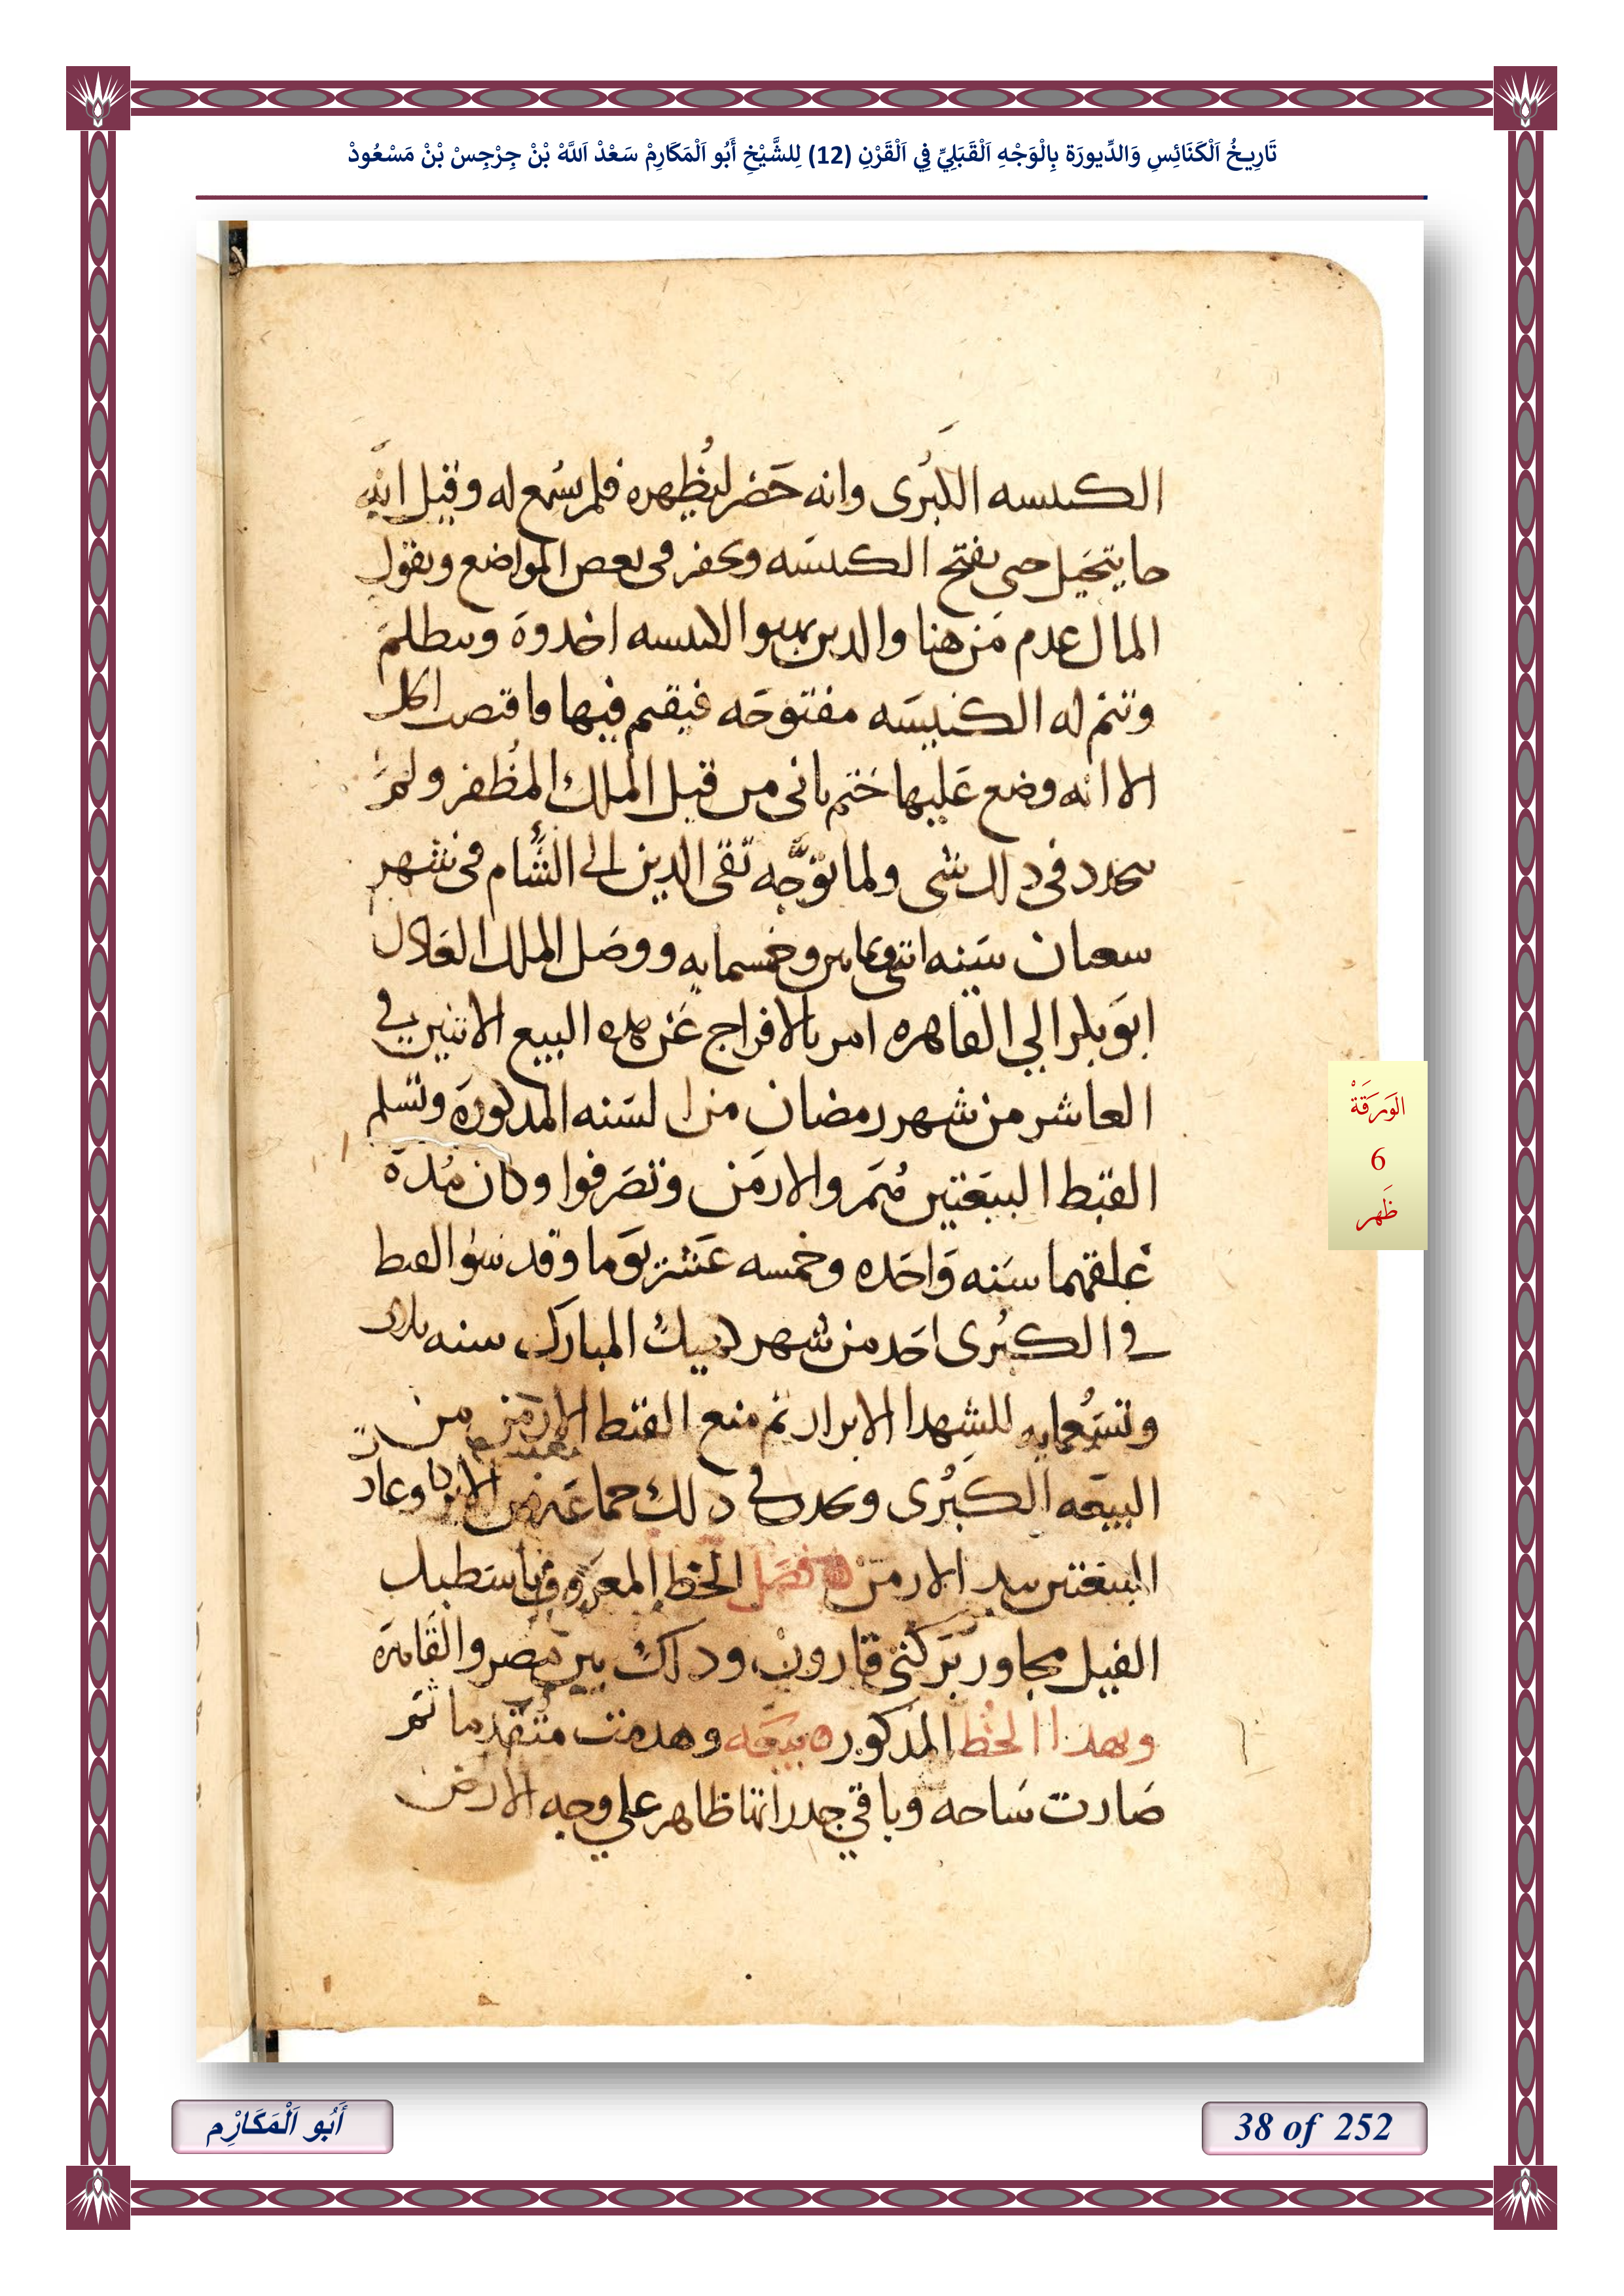 تَارِيخُ اَلْكَنَائِسِ وَالدِّيورَة بِالْوَجْهِ اَلْقَبَلِيِّ فِي اَلْقَرْنِ (12) لِلشَّيْخِ أَبُو اَلْمَكَارِمْ سَعْدْ اَللَّهْ بْنْ جِرْجِسْ بْنْ مَسْعُودْ
الكنيسه الكبرى وانه حضر ليظهره فلم يسمع له وقيل انه
ما يتحيل حتى يفتح الكنيسه ويحفر فى بعض المواضع ويقول
المال عدم من هنا والدين الكنيسه اخدوه
وتتم له الكنيسه مفتوحه فيقيم فيها
الا انه وضع عليها ختم تانى من قبل الملك المظفر ولم
يتجدد فى دلك شى ولما توجه تقى الدين الى الشام فى شهر
شعبان سنه اتنى وتمانين وخمسمايه ووصل الملك العادل
ابو بكر الي القاهره امر بالافراج عن هده البيع الاتنين في
العاشر من شهر رمضان من السنه المدكورة وتسلم
القبط البيعتين تم والارمن وتصرفوا وكان مدة
غلقهما سنه واحده وخمسه عشر يوما وقد القبط
في الكبرى احد من شهر المبارك سنه
وتسعمايه للشهدا الابرار تم منع القبط الارمن من
البيعه الكبرى في دلك جماعه من وعاد
البيعتين بيد الارمن فصل الخط المعروف باسطبل
الفيل مجاور بركتى قارون ودلك بين مصر والقاهرة
وبهدا الخط المدكور بيعه وهدمت متقدما تم
صارت ساحه وباقي جدرانها ظاهر علي وجه الارض
الوَرَقَةْ
6
ظَهر
أَبُو اَلْمَكَارِْم
38 of 252